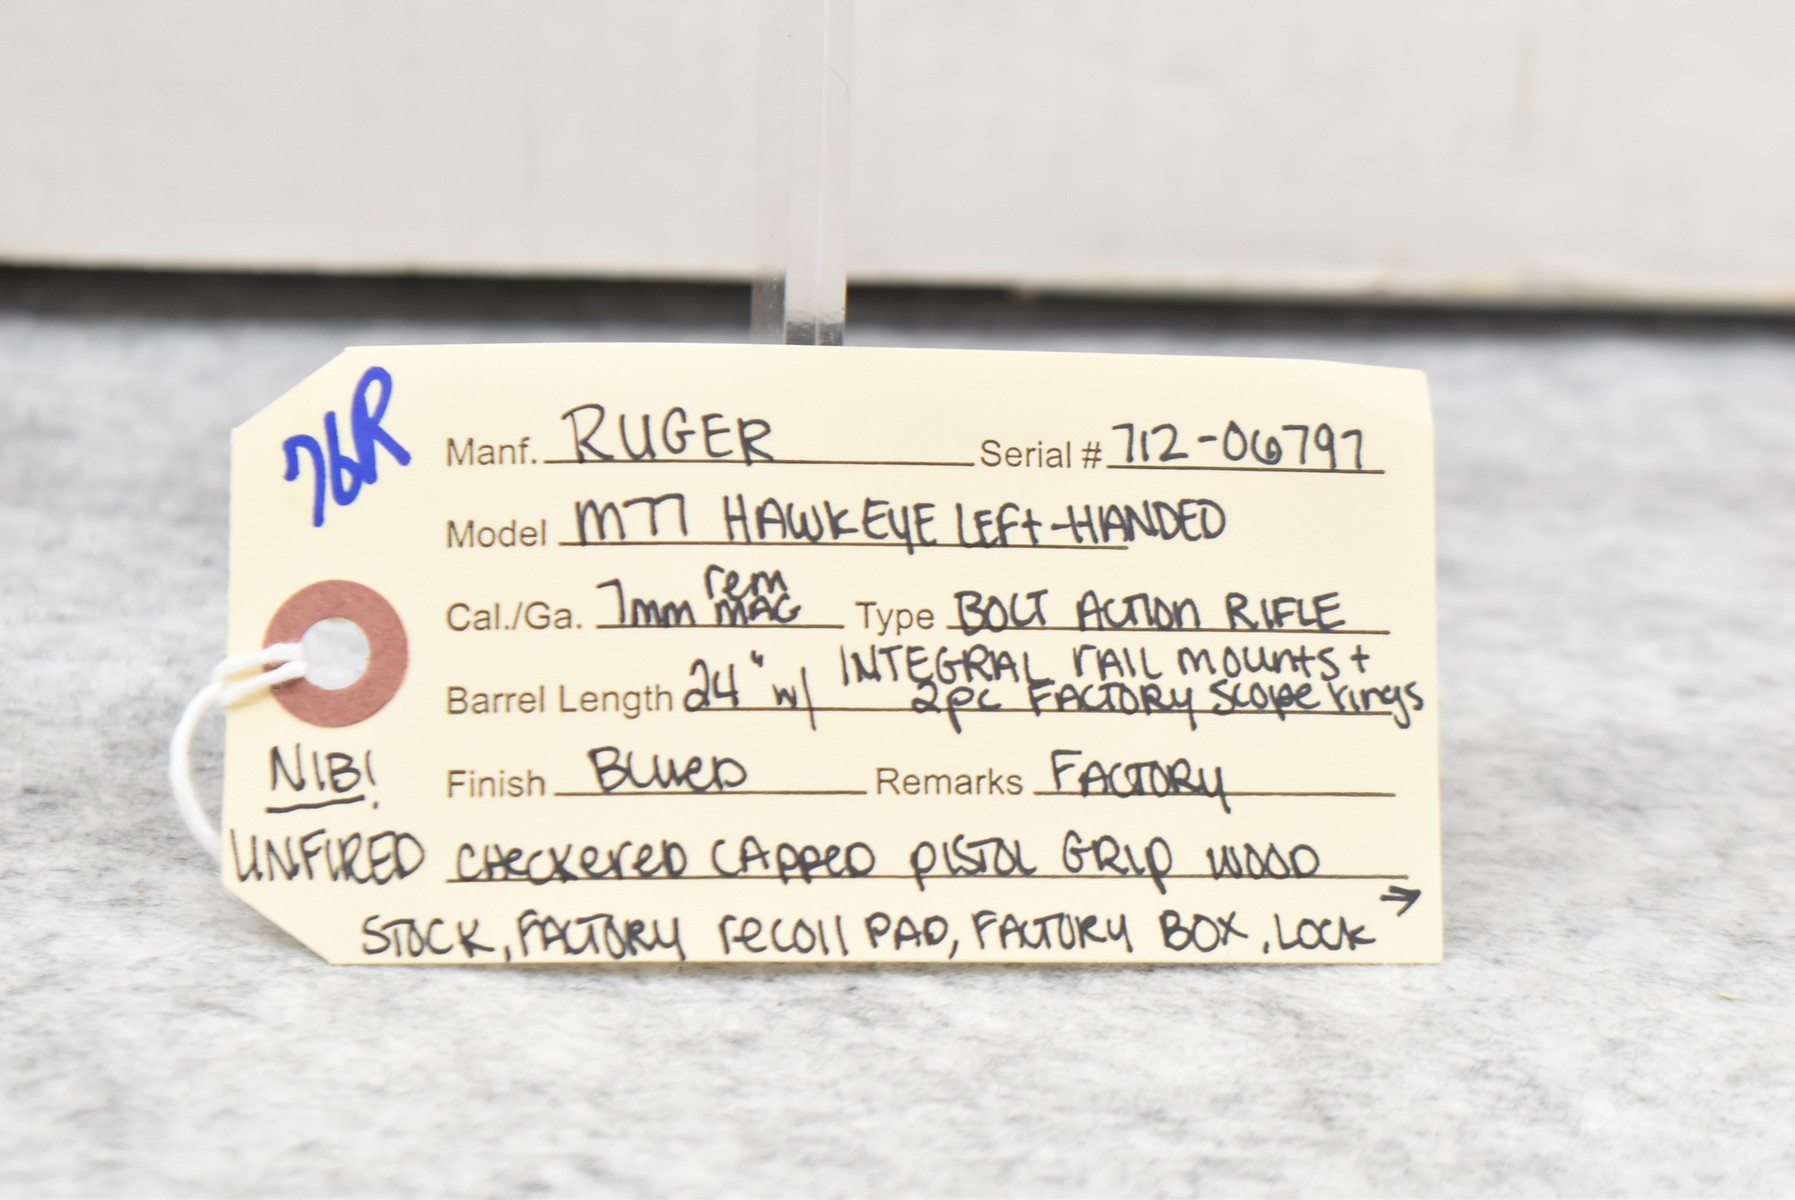 76R
Manf. RUGER Serial # 712-06797
Model M77 HAWKEYE LEFt-HANDED
Cal./Ga. 7mm rem MAG Type BOLT ACTION RIFLE
Barrel Length 24" w/ INTEGRAL rAIL mounts + 2pc FACTORY Scope rings
NIB! Finish BLUED Remarks FACTORY
UNFIRED CHeckereD CAPPED PISTOL GRIP WOOD
STOCK, FACTORY recoil PAD, FACTORY BOX, LOCK →